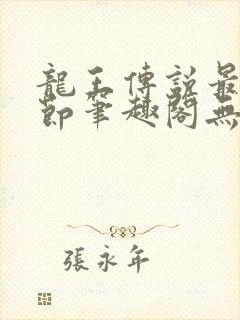 龍王傳説最
節筆趣閣無
張永年